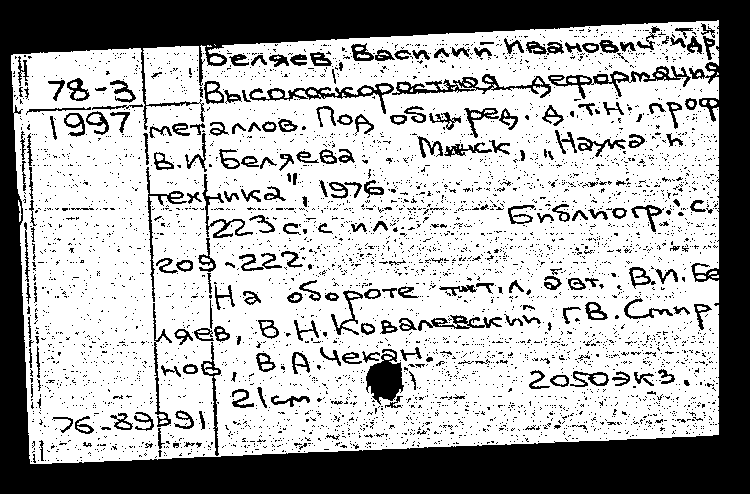 Беляев, Василий Иванович и др.
78-3 Высокоскоростная деформация
1997 металлов. Под общ. ред. д.т.н., проф.
В.И. Беляева. Минск, „Наука и
техника", 1976.
223 с. с ил. Библиогр.: с.
209-222.
На обороте тит. л. авт.: В.И. Бе-
ляев, В.Н. Ковалевский, Г.В. Смир-
нов, В.А. Чекан.
21 см. 2050 экз.
76-89391